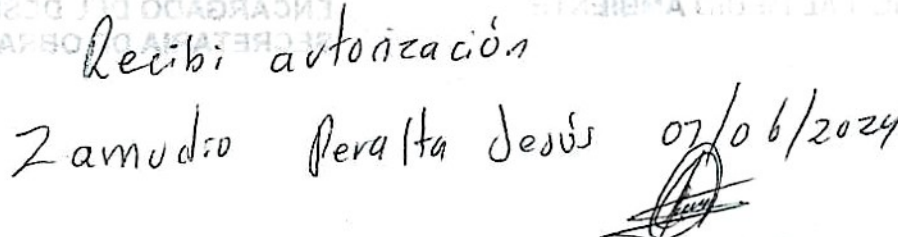 Recibi autorización
Zamudio Peralta Jesús 07/06/2024